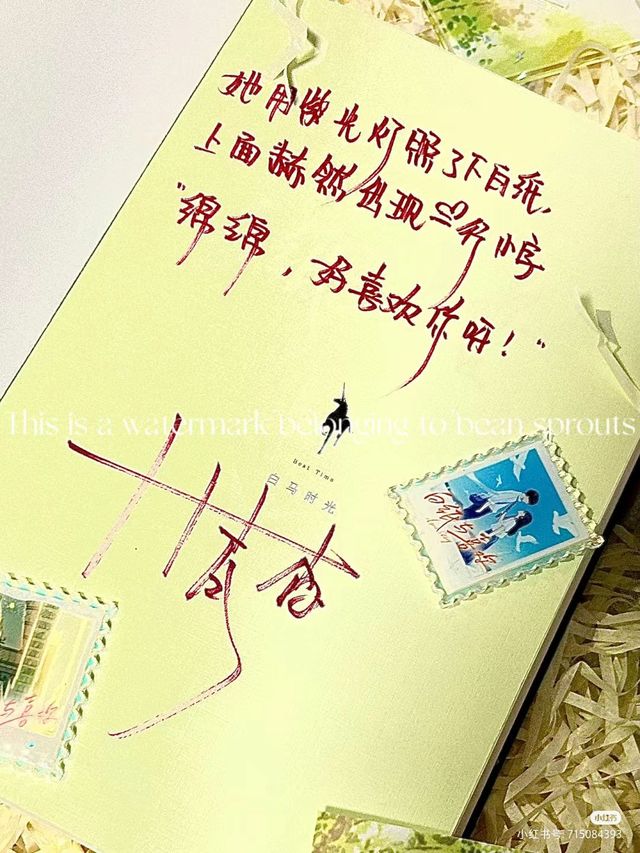 她用荧光灯照了下白纸，
上面赫然出现三个小字
"绵绵，好喜欢你呀！"
This is a watermark belonging to bean sprouts
Beat Time
白马时光
白纸与喜弥
与喜弥
小红书
小红书号: 715084393